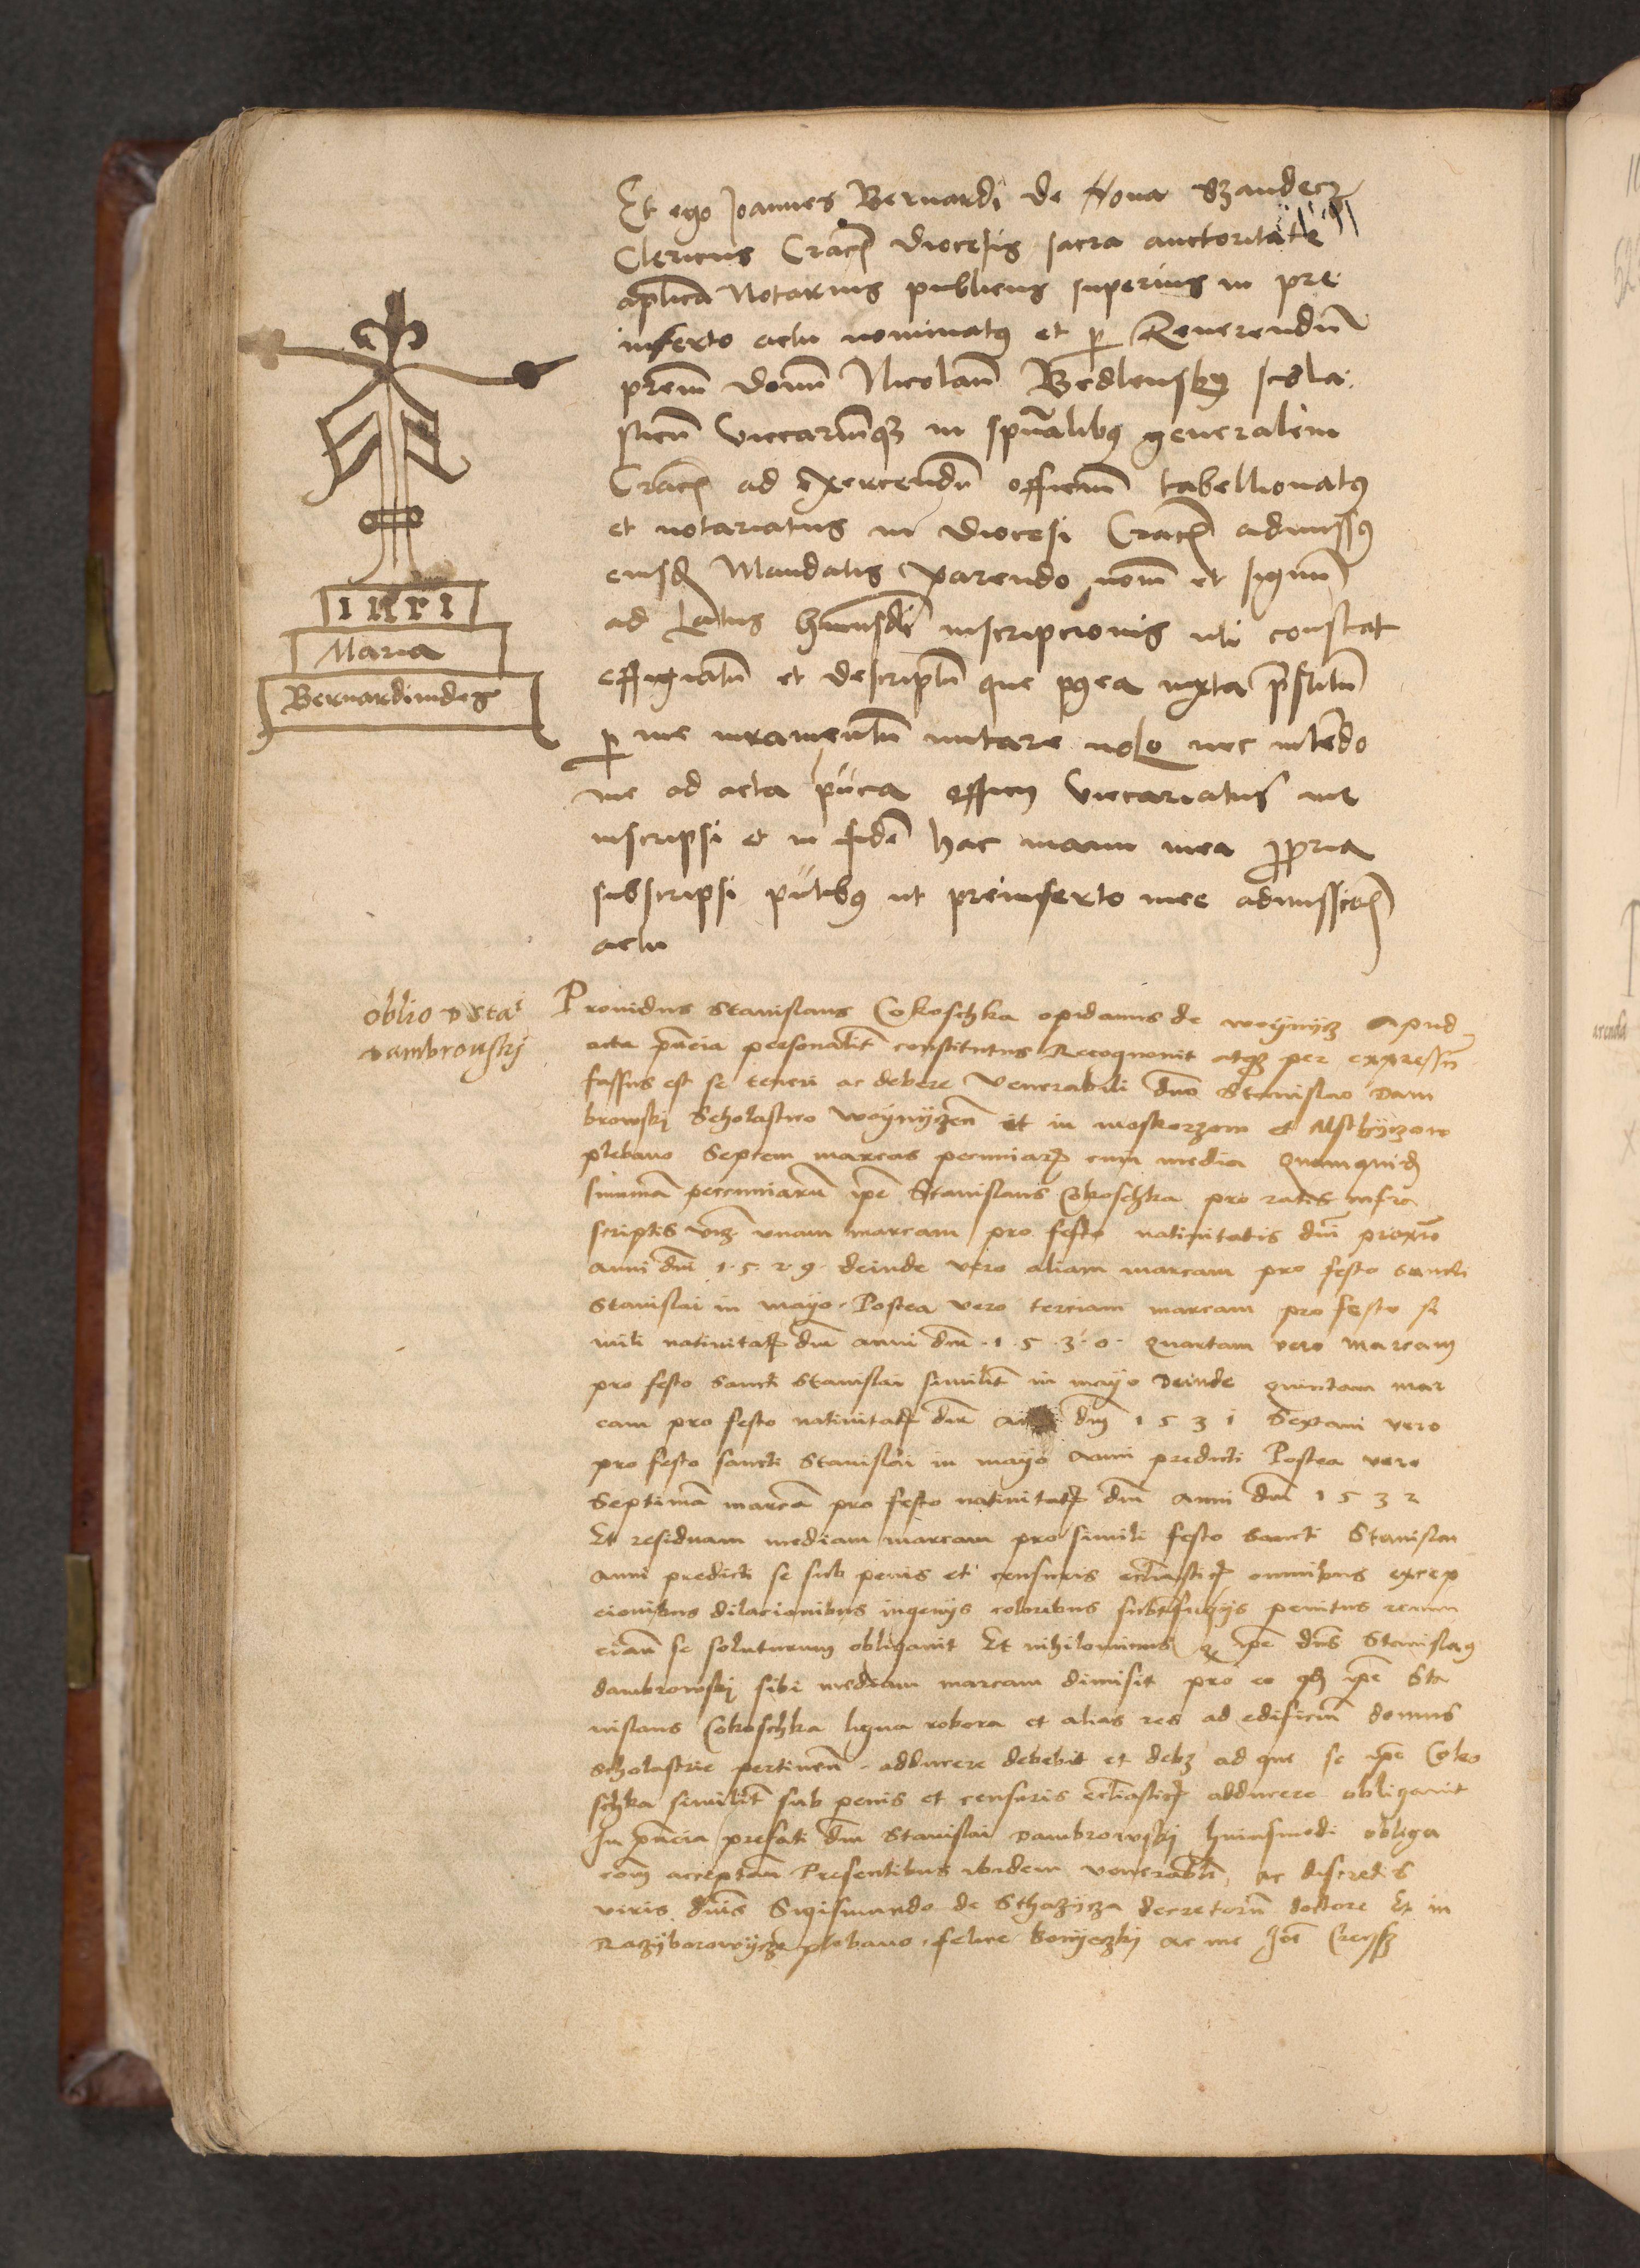 Et ego Joannes Bernardi de Nova Szandecz
Clericus Cracn̄ diocesis sacra auctoritate
aplica Notarius publicus superius in pre
inserto actu nominatus et p Reuerendū
prem̄ domū Nicolaū Bedlensky scola
sticū Viccariūqȝ in spūalibus generalem
Cracn̄ ad exercendū officiū tabellionatus
et notariatus in diocesi Cracn̄ admissus
eiusd Mandatis parendo nom̄ et signum
ad Latus huiusdi inscripcionis uti constat
effigiatū et descriptū que postea iuxta prestitū
p me iuramentū mutare nolo nec intēdo
me ad acta pūcia officij Viccariatus me
inscripsi et in fidē hac manu mea propria
subscripsi pūtibus ut preinserto mee admissiōn
actu
INRI
Maria
Bernardi
oblio D Stai
Dambrowskj
Prouidus Stanislaus Cokoschka opidanus de woynycz Apud
acta pn̄cia personalit constitutus Recognouit atqȝ per expressū
fassus est se teneri ac debere Venerabili dno Stanislao Dam
browskj Scholastico woynyczen̄ et in moskorzow et
plebano Septem marcas pecuniar cum media Quamquid
summā peccuniarū ipē Stanislaus Cokoschka pro ratis infra
scriptis vizȝ vnam marcam pro festo natiuitatis dni proximo
anni dni 1·5·2·9· deinde vero aliam marcam pro festo sancti
Stanislai in mayo · Postea vero terciam marcam pro festo si
mili natiuitat dni anni dni ·1·5·3·0· quartam vero marcam
pro festo sancti Stanislai similit in mayo Deinde quintam mar
cam pro festo natiuitat dni dni 1 5 3 1 Sextam vero
pro festo sancti Stanislai in mayo anni predicti Postea vero
Septimā marcā pro festo natiuitat dni anni dni 1 5 3 2
Et residuam mediam marcam pro simili festo sancti Stanislai
anni predicti se sub penis et censuris ecclīastic omnibus excep
cionibus dilacionibus ingenijs coloribus subtfugijs penitus remo
se soluturum obligauit Et nihilominus ipē dns Stanislaus
dambrowskj sibi mediam marcam dimisit pro eo qd ipē Sta
nislaus Cokoschka ligna robora et alias res ad edificiū domus
scholastrie pertinen̄ · adducere debebit et debȝ ad que se ipē Coko
schka similit sub penis et censuris ecclīastic adducere obligauit
In pn̄cia prefati dni Stanislai Dambrowskj huiusmodi obliga
com̄ acceptan̄ Presentibus ibidem venerabli ac discretis
viris dnis Sigismundo de Sthazycza decretorū doctore Et in
Raczyborowycze plebano · felice ac me